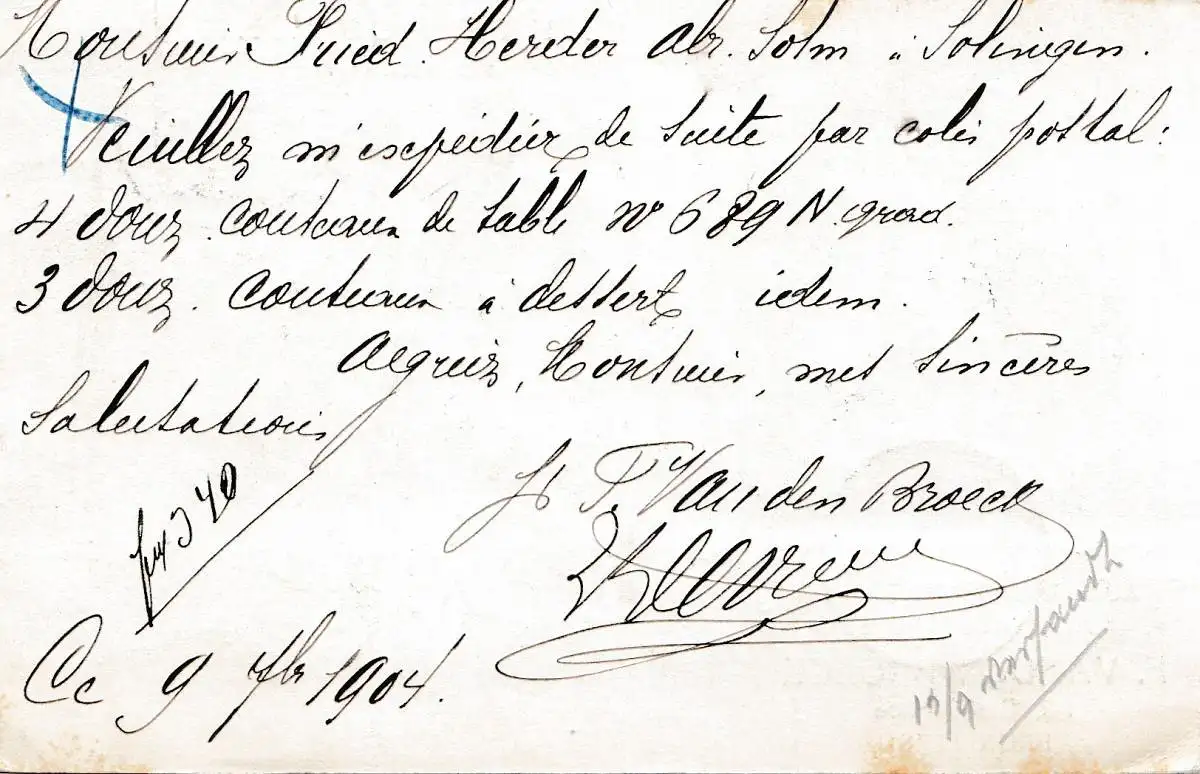 Monsieur Fried. Herder Abr. Sohn à Solingen.
Veuillez m'expédier de suite par colis postal:
4 douz. couteaux de table No 689 N. grad.
3 douz. couteaux à dessert idem.
Agréez, Monsieur, mes sincères
Salutations
J. Vanden Broeck
Ce 9 7br 1904.
13/9